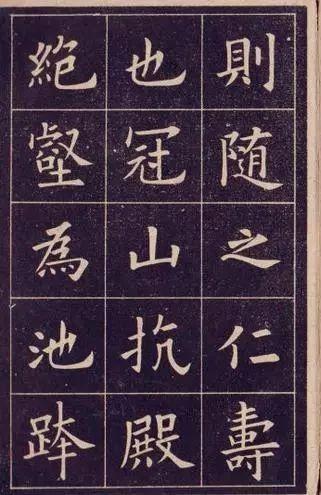 則隨之仁壽
也冠山抗殿
絕壑為池跨